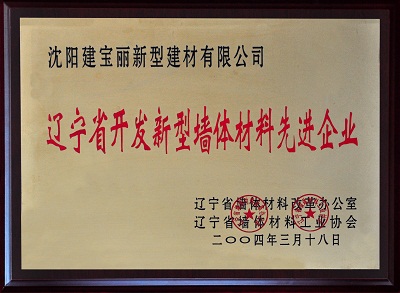 沈阳建宝丽新型建材有限公司
辽宁省开发新型墙体材料先进企业
辽宁省墙体材料改革办公室
辽宁省墙体材料工业协会
二〇〇四年三月十八日